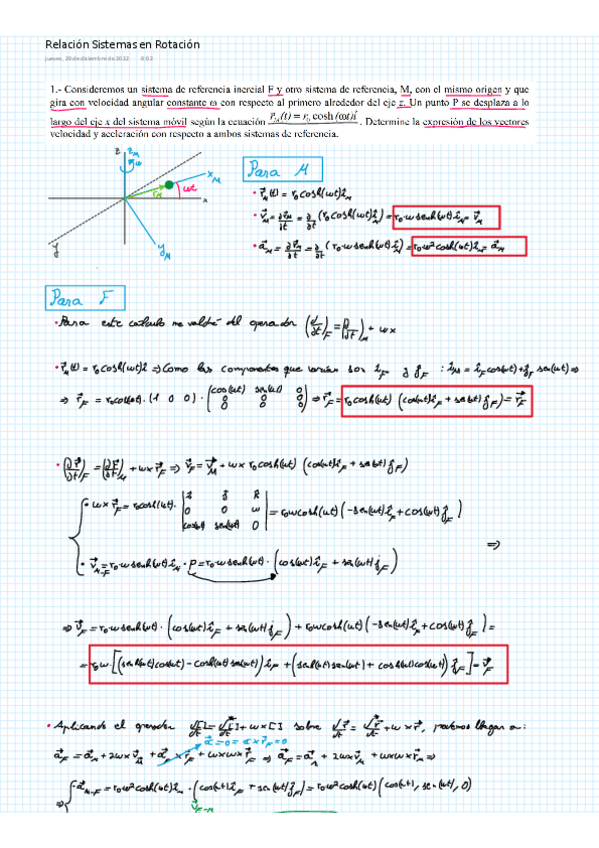 Relación Sistemas en Rotación
jueves, 29 de diciembre de 2022 9:02
1.- Consideremos un sistema de referencia inercial F y otro sistema de referencia, M, con el mismo origen y que
gira con velocidad angular constante ω con respecto al primero alrededor del eje z. Un punto P se desplaza a lo
largo del eje x del sistema móvil según la ecuación P_M(t) = r₀ cosh(ωt)î. Determine la expresión de los vectores
velocidad y aceleración con respecto a ambos sistemas de referencia.
z z_M
ω
x_M
r_M
ωt
x
y
y_M
Para M
• r⃗_M(t) = r₀cosh(ωt)î_M
• v⃗_M = ∂r⃗_M/∂t = ∂/∂t (r₀cosh(ωt)î_M) = r₀ω senh(ωt)·î_M = v⃗_M
• a⃗_M = ∂v⃗_M/∂t = ∂/∂t (r₀ω senh(ωt)·î_M) = r₀ω²cosh(ωt)î_M = a⃗_M
Para F
• Para este cálculo me valdré del operador (d/dt)_F = (d/dt)_M + ω×
• r⃗_M(t) = r₀cosh(ωt)î ⇒ Como las componentes que varían son î_F y ĵ_F : î_M = î_F cos(ωt) + ĵ_F sen(ωt) ⇒
⇒ r⃗_F = r₀cosh(ωt)·(1 0 0)·(cos(ωt) sen(ωt) 0 0 0 0 0 0) ⇒ r⃗_F = r₀cosh(ωt) (cos(ωt)î_F + sen(ωt)ĵ_F) = r⃗_F
• (∂r⃗/∂t)_F = (∂r⃗/∂t)_M + ω×r⃗_F ⇒ v⃗_F = v⃗_M + ω×r₀cosh(ωt) (cos(ωt)î_F + sen(ωt)ĵ_F)
• ω×r⃗_F = r₀cosh(ωt)· | î ĵ k̂ 0 0 ω cos(ωt) sen(ωt) 0 | = r₀ωcosh(ωt)(-sen(ωt)î_F + cos(ωt)ĵ_F)
⇒
• v⃗_M-F = r₀ω senh(ωt)î_M · P = r₀ω senh(ωt)·(cos(ωt)î_F + sen(ωt)ĵ_F)
⇒ v⃗_F = r₀ω senh(ωt)·(cos(ωt)î_F + sen(ωt)ĵ_F) + r₀ωcosh(ωt)(-sen(ωt)î_F + cos(ωt)ĵ_F) =
= r₀ω·[(senh(ωt)cos(ωt) - cosh(ωt)sen(ωt))î_F + (senh(ωt)sen(ωt) + cosh(ωt)cos(ωt))ĵ_F] = v⃗_F
• Aplicando el operador d[]/dt = d*[]/dt + ω×[] sobre dr⃗/dt = d*r⃗/dt + ω×r⃗, podemos llegar a:
α⃗=0 ⇒ α×r⃗_F=0
a⃗_F = a⃗_M + 2ω×v⃗_M + α⃗_F×r⃗_F + ω×ω×r⃗_F ⇒ a⃗_F = a⃗_M + 2ω×v⃗_M + ω×ω×r⃗_F ⇒
⇒
• a⃗_M-F = r₀ω²cosh(ωt)î_M·(cos(ωt)î_F + sen(ωt)ĵ_F) = r₀ω²cosh(ωt)(cos(ωt), sen(ωt), 0)
v⃗_F-M